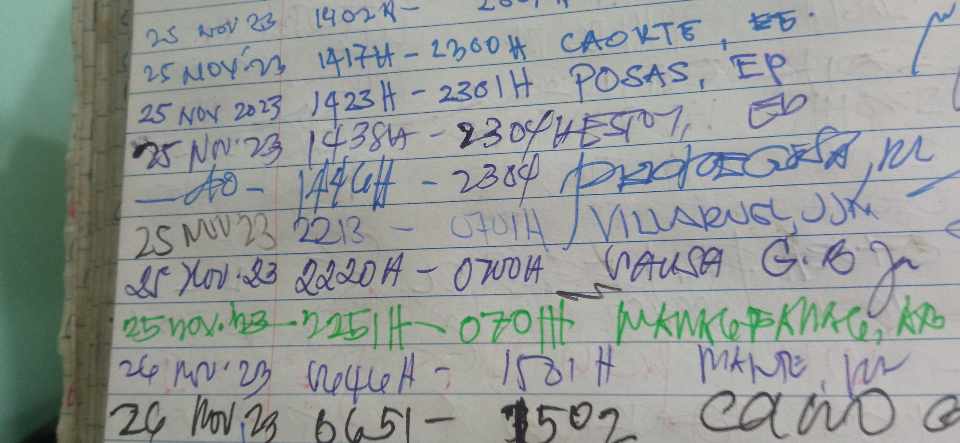 25 NOV 23 1402H -
25 NOV 23 1417H - 2300H CAORTE, EE.
25 NOV 2023 1423H - 2301H POSAS, EP
25 NOV. 23 1438H - 2304H
- DO - 1446H - 2304
25 NOV 23 2213 - 0701H VILLARUEL, JJM
25 NOV. 23 2220H - 0700H G. B Jr
25 NOV. 23 - 2251H - 0701H
26 NOV. 23 0646H - 1501H MANTE, JR
26 NOV, 23 0651 - 1502 CANO